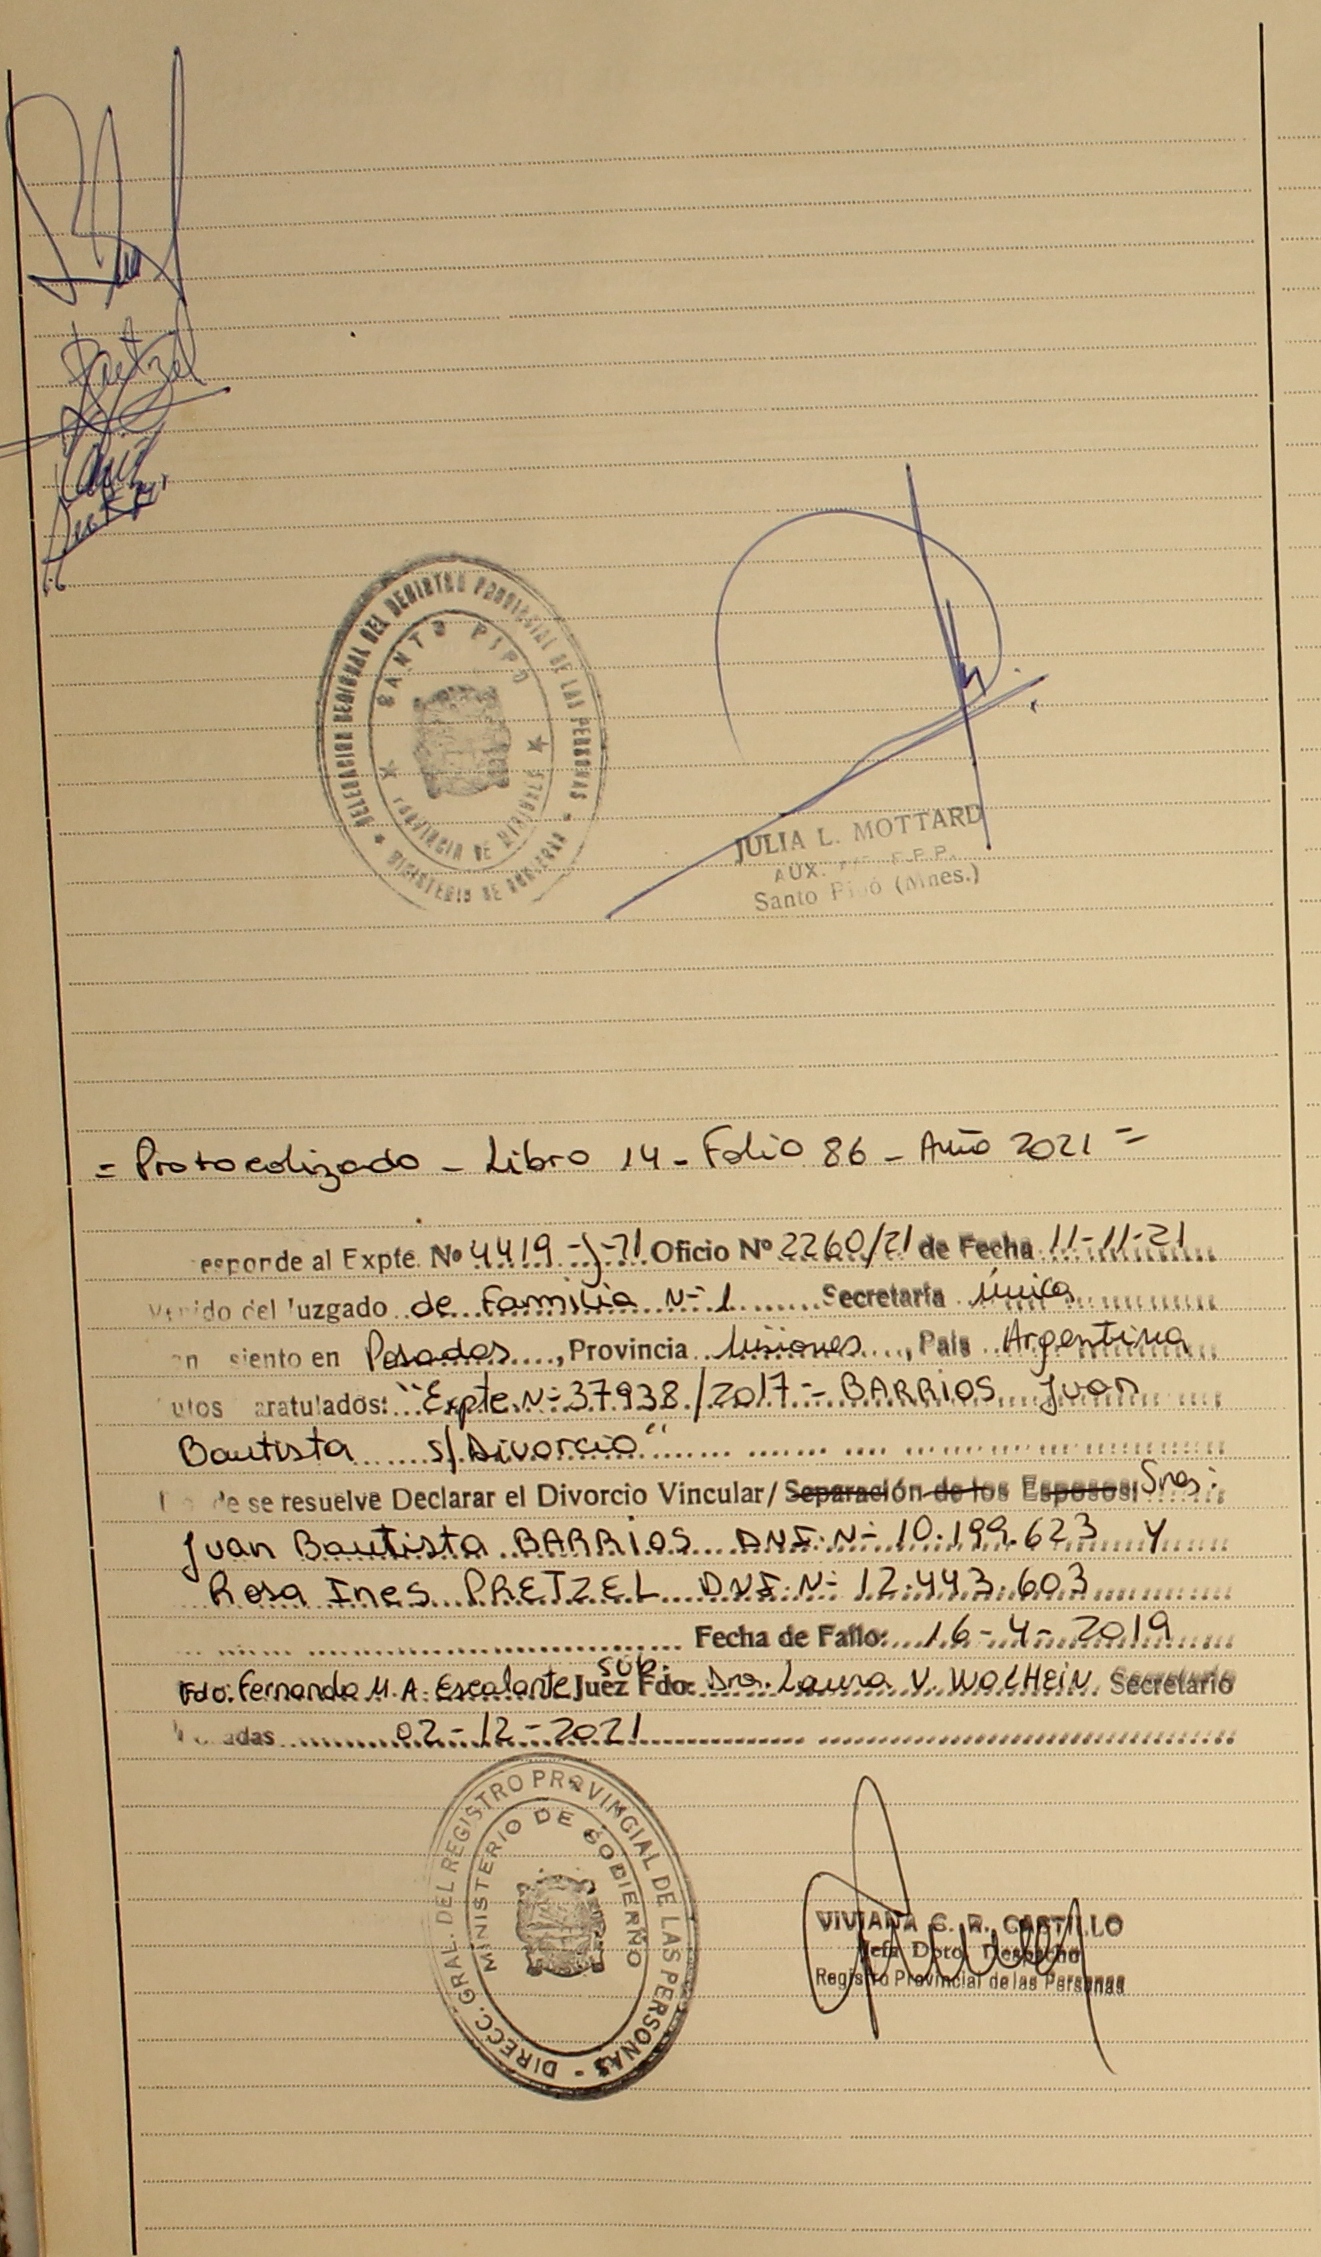 Pretzel
DELEGACION REGIONAL DEL REGISTRO PROVINCIAL DE LAS PERSONAS
SANTO PIPO
PROVINCIA DE MISIONES
MINISTERIO DE GOBIERNO
JULIA L. MOTTARD
AUX. R.P.P.
Santo Pipó (Mnes.)
= Protocolizado - Libro 14 - Folio 86 - Año 2021 =
esponde al Expte. Nº 4419-J-21 Oficio Nº 2260/21 de Fecha 11-11-21
venido del Juzgado de Familia Nº 1 Secretaría Única
en siento en Posadas, Provincia Misiones, País Argentina
utos aratulados: "Expte Nº 37938/2017 - BARRIOS Juan
Bautista s/Divorcio"
de se resuelve Declarar el Divorcio Vincular/ Separación de los Esposos: Sres:
Juan Bautista BARRIOS DNI: Nº 10.199.623 y
Rosa Ines PRETZEL DNI: Nº 12.443.603
Fecha de Fallo: 16-4-2019
Fdo: Fernando M. A. Escalante Juez Sub. Fdo: Dra. Laura V. WOLHEIN Secretario
adas 02-12-2021
DIRECC. GRAL. DEL REGISTRO PROVINCIAL DE LAS PERSONAS -
MINISTERIO DE GOBIERNO
VIVIANA G. R. CASTILLO
Jefa Dpto. Despacho
Registro Provincial de las Personas